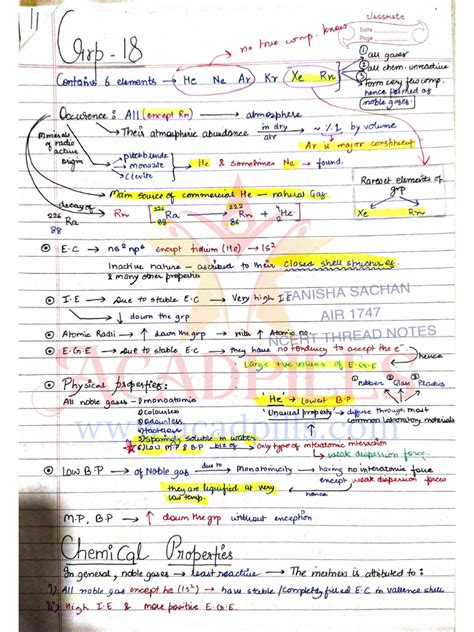 classmate
Date
Page
Grp - 18
no true comp. know
① all gases
② all chem. unreactive
③ form very few comp.
hence termed as
noble gases.
Contains 6 elements → He Ne Ar Kr Xe Rn
Occurence : All (except Rn) → atmosphere
Their atmospheric abundance in dry air → ~ 1% by volume
Ar is major constituent
Minerals of radio active origin
pitchblende
monazite
Clevite
He & sometimes Ne → found.
Main source of commercial He — natural gas
Rarest elements of grp
Xe Rn
decay of
226 Ra 88
Rn [ 226 Ra 88 → 222 Rn 86 + 4 He 2 ]
E.C → ns² np⁶ except helium (He) → 1s²
Inactive nature — ascribed to their closed shell structures.
& many other properties
I.E → Due to stable E.C → Very high I.E
↓ down the grp
TANISHA SACHAN
AIR 1747
NCERT THREAD NOTES
Atomic Radii → ↑ down the grp → with ↑ Atomic no.
E.G.E → due to stable E.C → they have no tendency to accept the e⁻
hence
Large +ve values of E.G.E
ACADPILLS
Physical properties:
① rubber ② Glass ③ Plastics
All noble gases - ① monoatomic
② Colourless
③ Odourless
④ tasteless
⑤ Sparingly soluble in water
⑥ low M.P & B.P
He → lowest B.P
'Unusual property' → diffuse through most common laboratory materials
Only type of interatomic interaction
↳ weak dispersion force
LOW B.P → of Noble gas due to → Monatomicity → having no interatomic force
except weak dispersion forces
hence
they are liquified at very low temp.
M.P, B.P → ↑ down the grp without exception
Chemical Properties
In general, noble gases → least reactive → The inertness is attributed to :
i) All noble gas except He (1s²) → have stable / completely filled E.C in valence shell
ii) High I.E & more positive E.G.E.